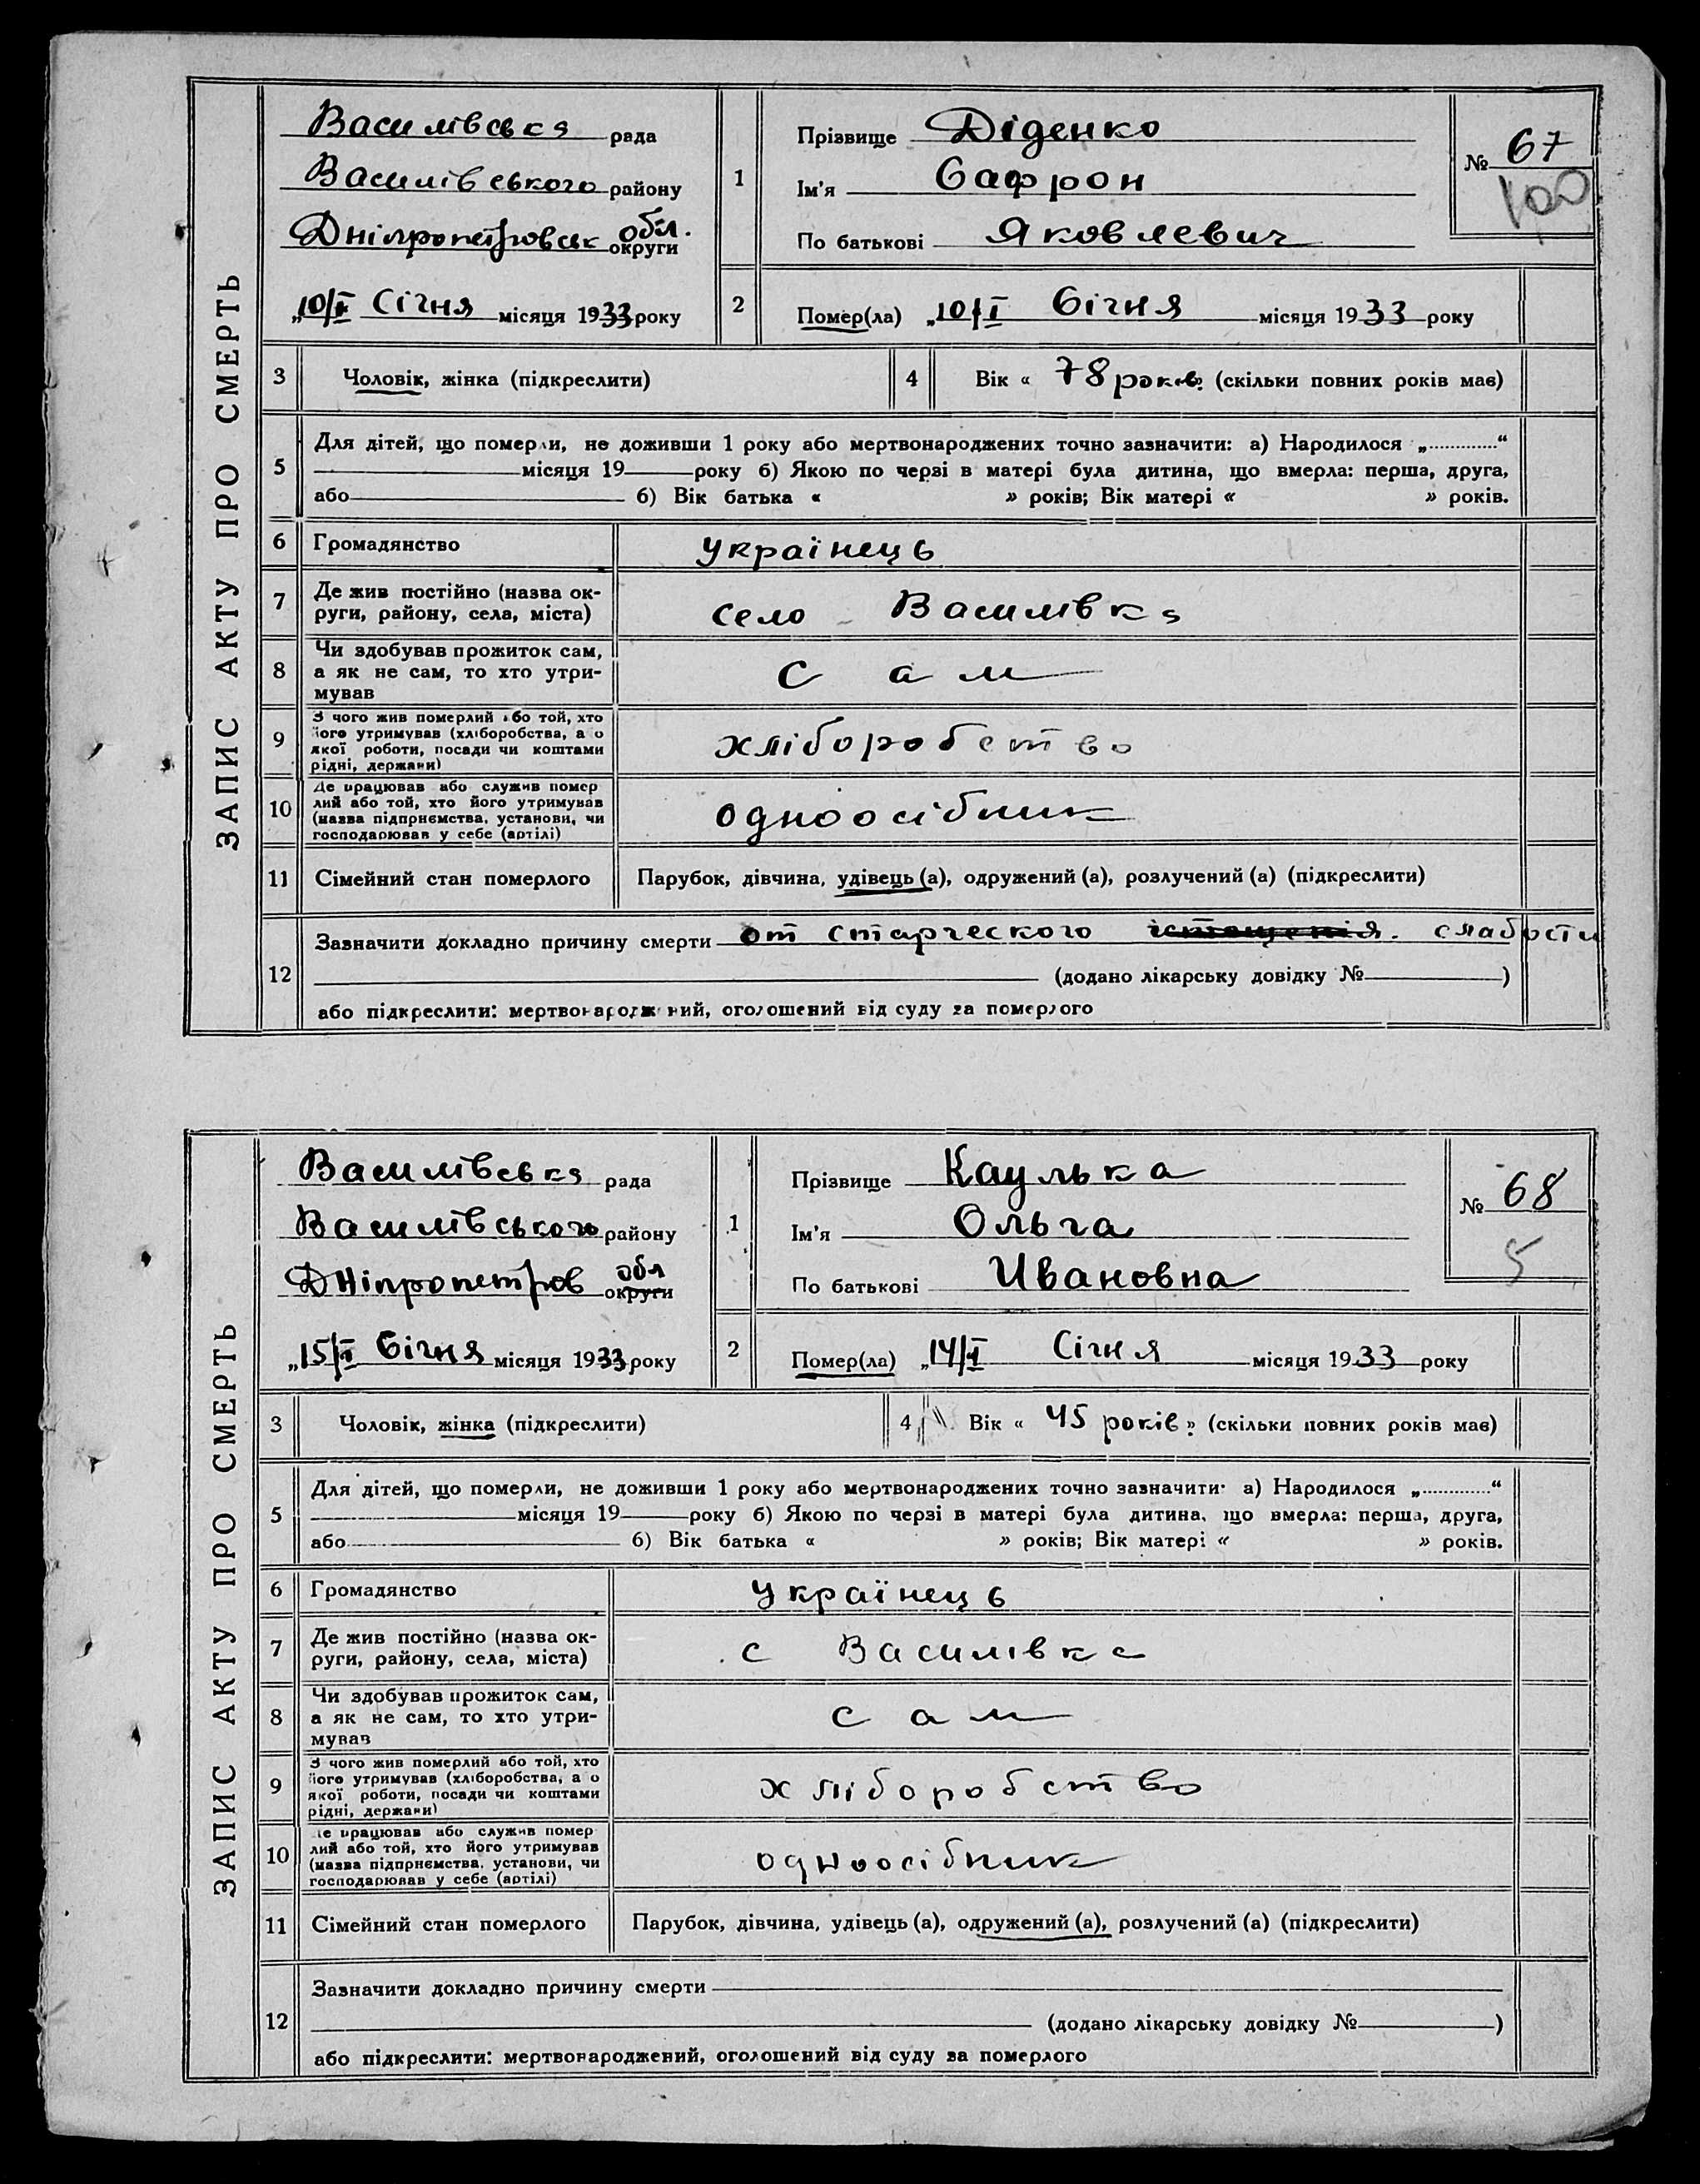 ЗАПИС АКТУ ПРО СМЕРТЬ
Василівська рада
Василівського району
Дніпропетровськ обл. округи
„10/I Січня місяця 1933 року
1
Прізвище Діденко
Ім'я Сафрон
По батькові Яковлевич
№ 67
100
2
Помер(ла) „10/I Січня місяця 1933 року
3 Чоловік, жінка (підкреслити)
4 Вік « 78 років» (скільки повних років має)
5 Для дітей, що померли, не доживши 1 року або мертвонароджених точно зазначити: а) Народилося „ “
місяця 19 року б) Якою по черзі в матері була дитина, що вмерла: перша, друга,
або б) Вік батька « » років; Вік матері « » років.
6 Громадянство українець
7 Де жив постійно (назва ок-
руги, району, села, міста)
село Василівка
8 Чи здобував прожиток сам,
а як не сам, то хто утри-
мував
сам
9 З чого жив померлий або той, хто
його утримував (хліборобства, або
якої роботи, посади чи коштами
рідні, держави)
хліборобство
10 Де працював або служив помер
лий або той, хто його утримував
(назва підприємства, установи, чи
господарював у себе (артілі)
одноосібник
11 Сімейний стан померлого Парубок, дівчина, удівець (а), одружений (а), розлучений (а) (підкреслити)
12 Зазначити докладно причину смерти от старческого істощенія. слабости
(додано лікарську довідку № )
або підкреслити: мертвонароджений, оголошений від суду за померлого
ЗАПИС АКТУ ПРО СМЕРТЬ
Василівська рада
Василівського району
Дніпропетров обл округи
„15/I Січня місяця 1933 року
1
Прізвище Каулька
Ім'я Ольга
По батькові Ивановна
№ 68
5
2
Помер(ла) „14/I Січня місяця 1933 року
3 Чоловік, жінка (підкреслити)
4 Вік « 45 років» (скільки повних років має)
5 Для дітей, що померли, не доживши 1 року або мертвонароджених точно зазначити: а) Народилося „ “
місяця 19 року б) Якою по черзі в матері була дитина, що вмерла: перша, друга,
або б) Вік батька « » років; Вік матері « » років.
6 Громадянство українець
7 Де жив постійно (назва ок-
руги, району, села, міста)
с Василівка
8 Чи здобував прожиток сам,
а як не сам, то хто утри-
мував
сам
9 З чого жив померлий або той, хто
його утримував (хліборобства, або
якої роботи, посади чи коштами
рідні, держави)
хліборобство
10 Де працював або служив помер
лий або той, хто його утримував
(назва підприємства, установи, чи
господарював у себе (артілі)
одноосібник
11 Сімейний стан померлого Парубок, дівчина, удівець (а), одружений (а), розлучений (а) (підкреслити)
12 Зазначити докладно причину смерти
(додано лікарську довідку № )
або підкреслити: мертвонароджений, оголошений від суду за померлого